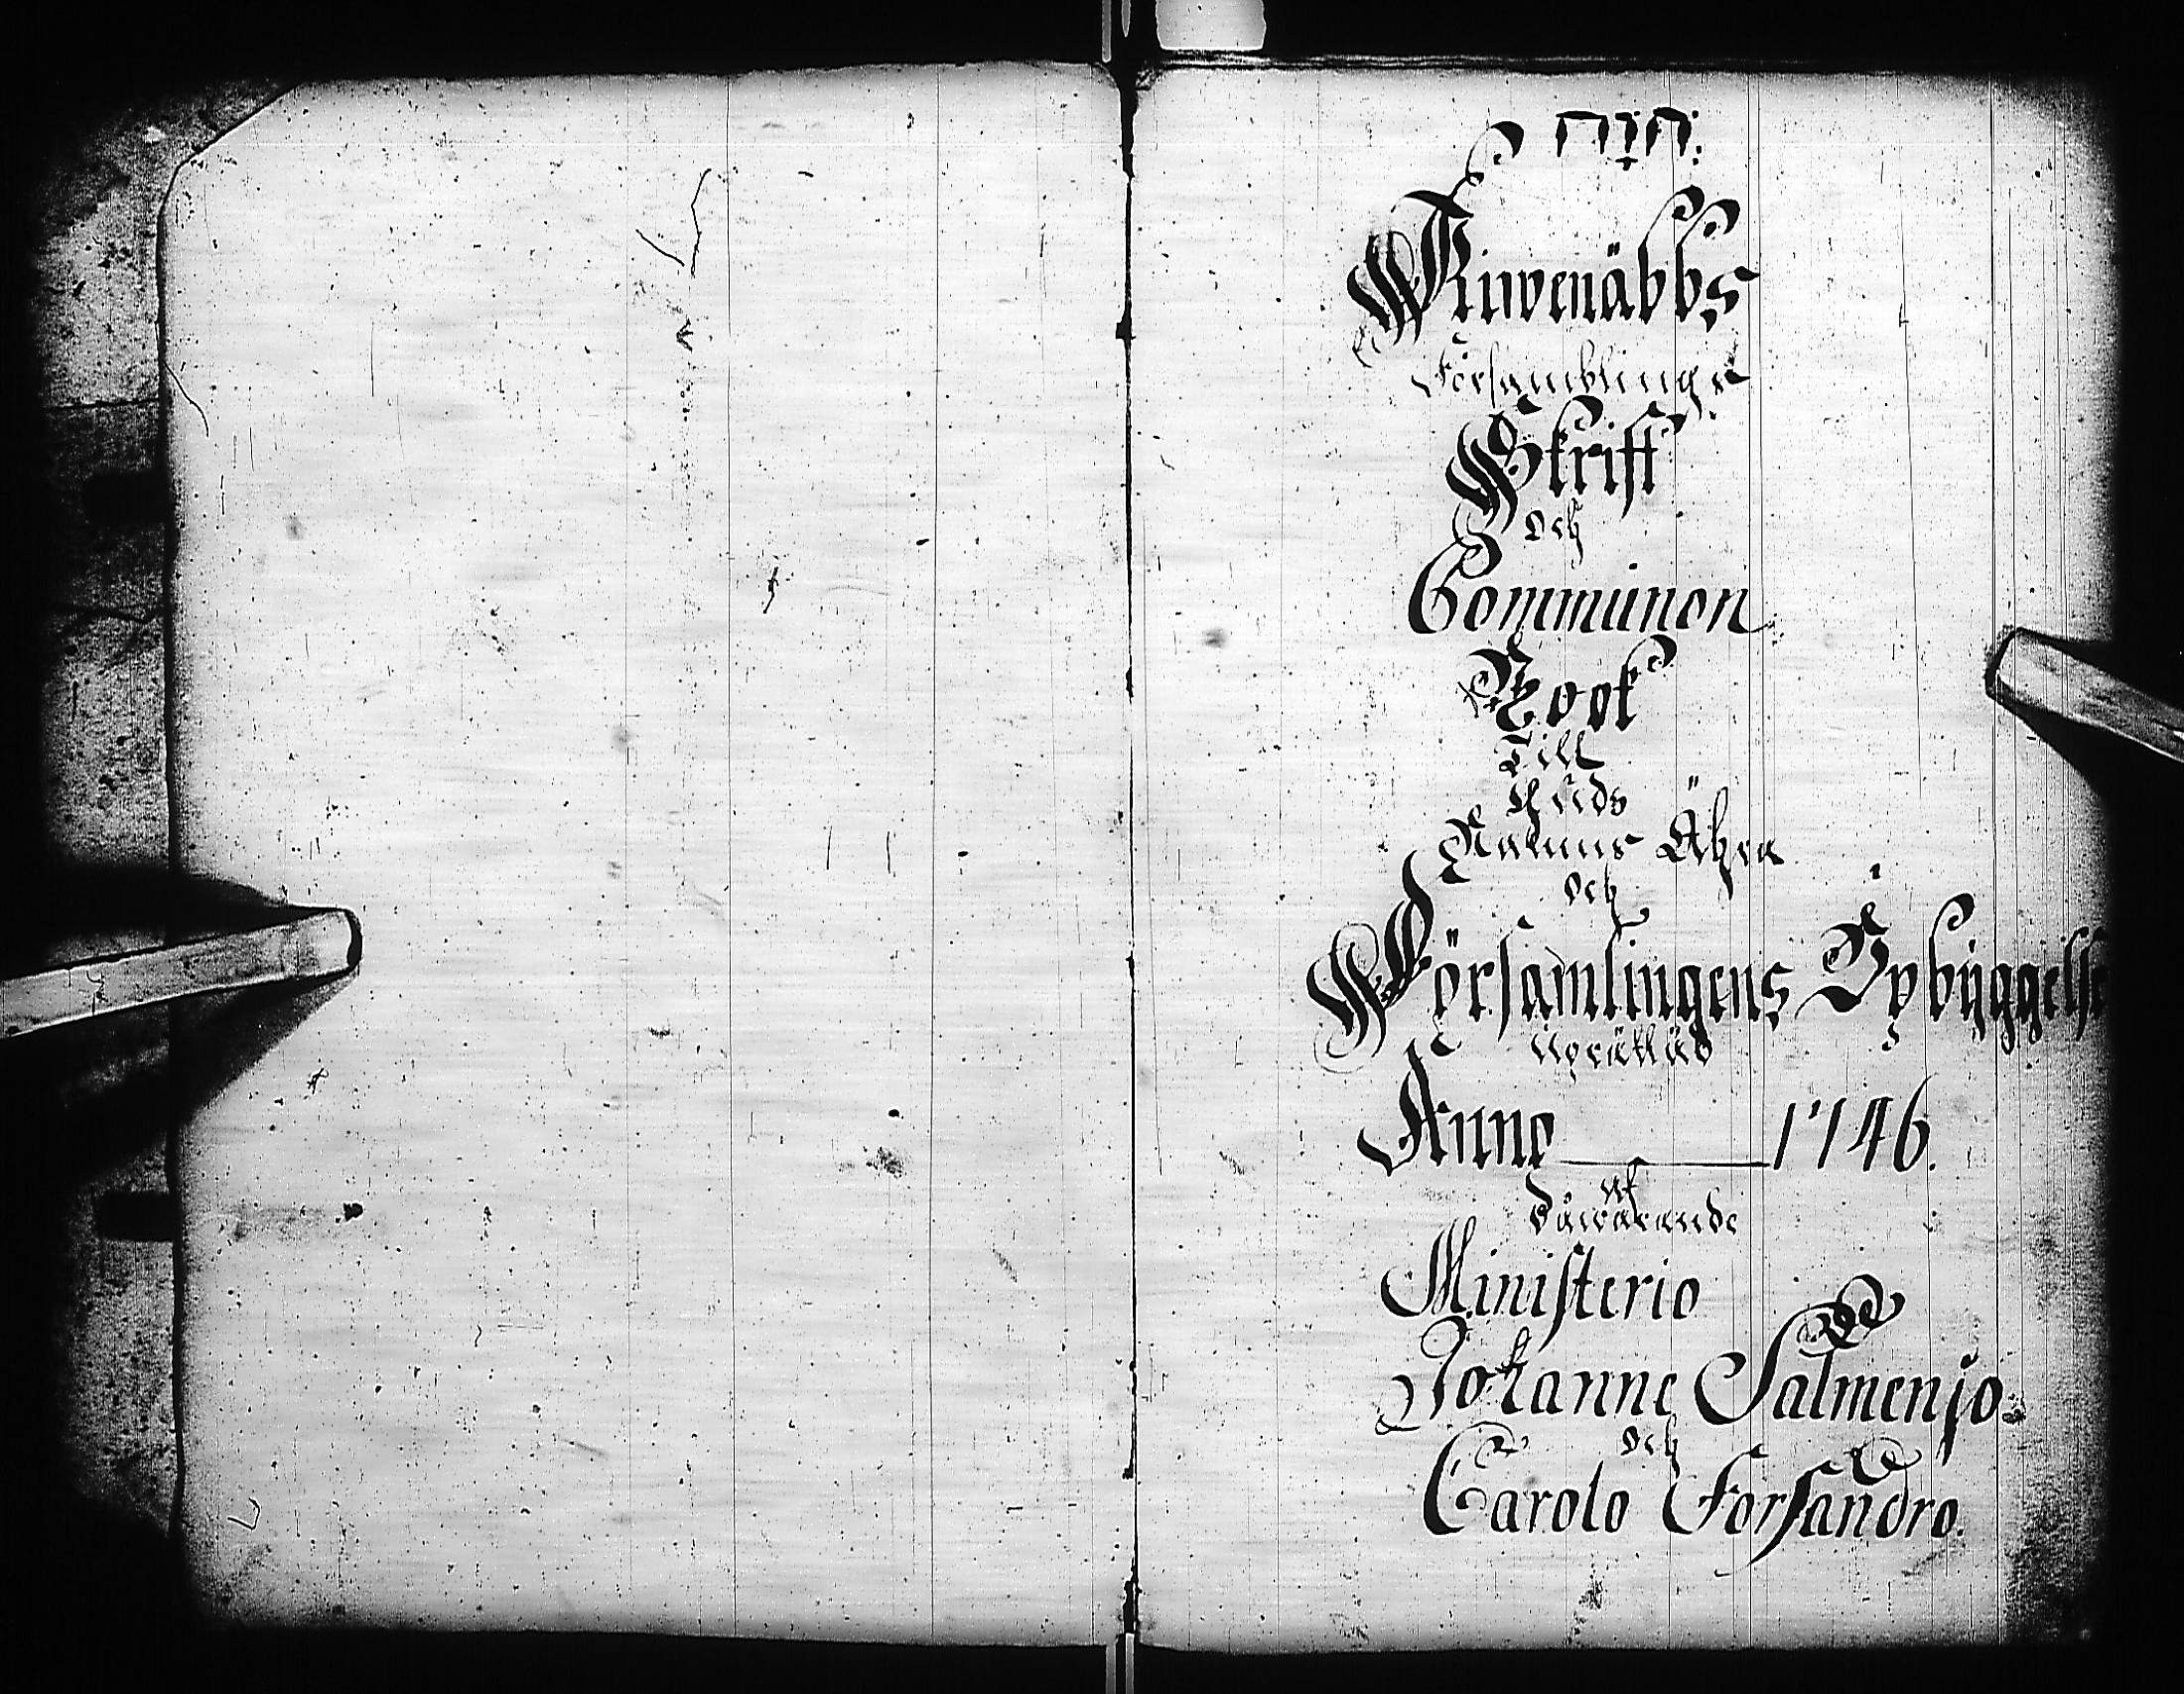 יהוה
Kiwenäbbs
Församblings
Skrift
Och
Communon
Book
Till
Guds
Namns Ähra
Och
Församlingens Opbyggelse
Uprättad
Anno 1746.
Af
Dåwarande
Ministerio
Johanne Salmenio.
Och
Carolo Forsandro.